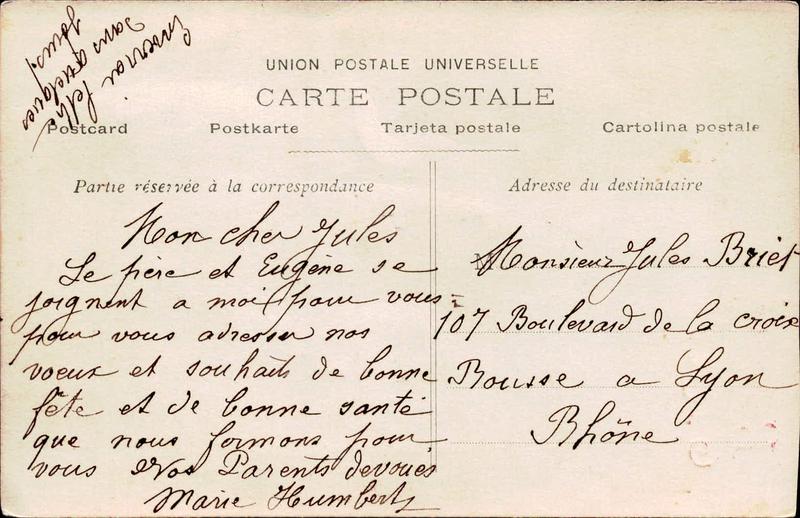 Enverrai
dans quelques
jours
UNION POSTALE UNIVERSELLE
CARTE POSTALE
Postcard Postkarte Tarjeta postale Cartolina postale
Partie réservée à la correspondance
Mon cher Jules
Le père et Eugène se
joignent a moi pour vous
pour vous adresser nos
voeux et souhaits de bonne
fête et de bonne santé
que nous formons pour
vous Vos Parents devoués
Marie Humbert
Adresse du destinataire
Monsieur Jules Briet
107 Boulevard de la croix
Rousse a Lyon
Rhône